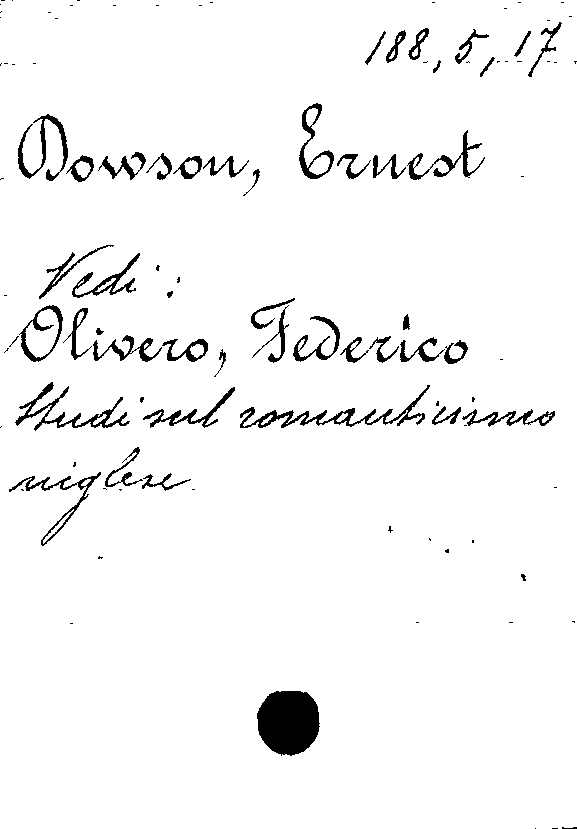 188, 5, 17
Dowson, Ernest
Vedi:
Olivero, Federico
Studi sul romanticismo
inglese